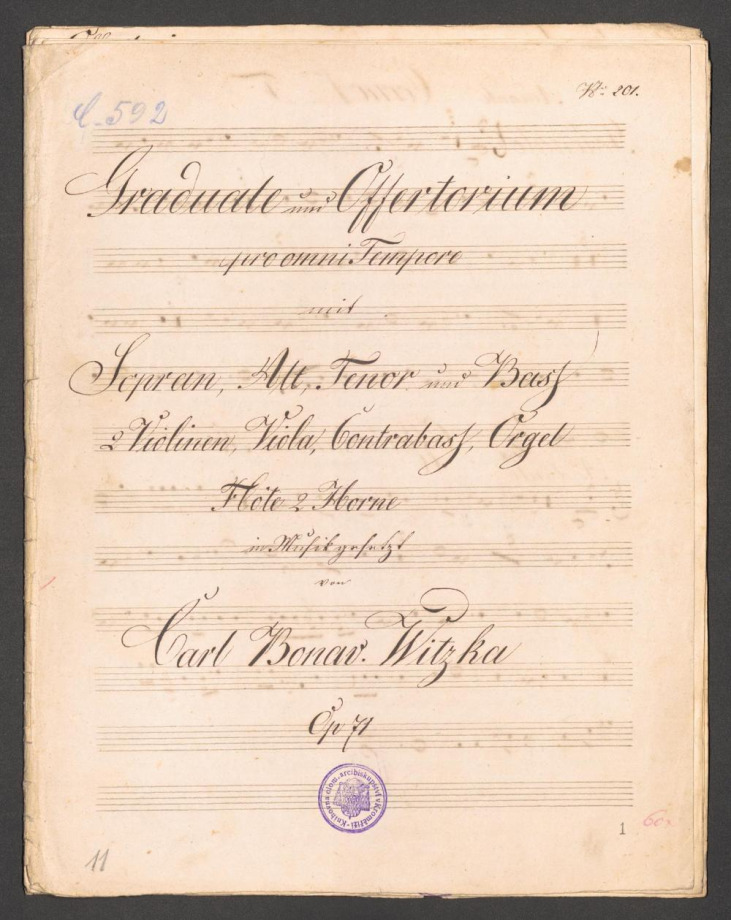 C. 592
No: 201.
Graduale und Offertorium
pro omni Tempore
mit
Sopran, Alt, Tenor und Bass
2 Violinen, Viola, Contrabass, Orgel
Flöte 2 Horne
in Musik gesetzt
von
Carl Bonav. Witzka
Op 71
Knihovna olom. arcibiskupství v Kroměříži
1
11